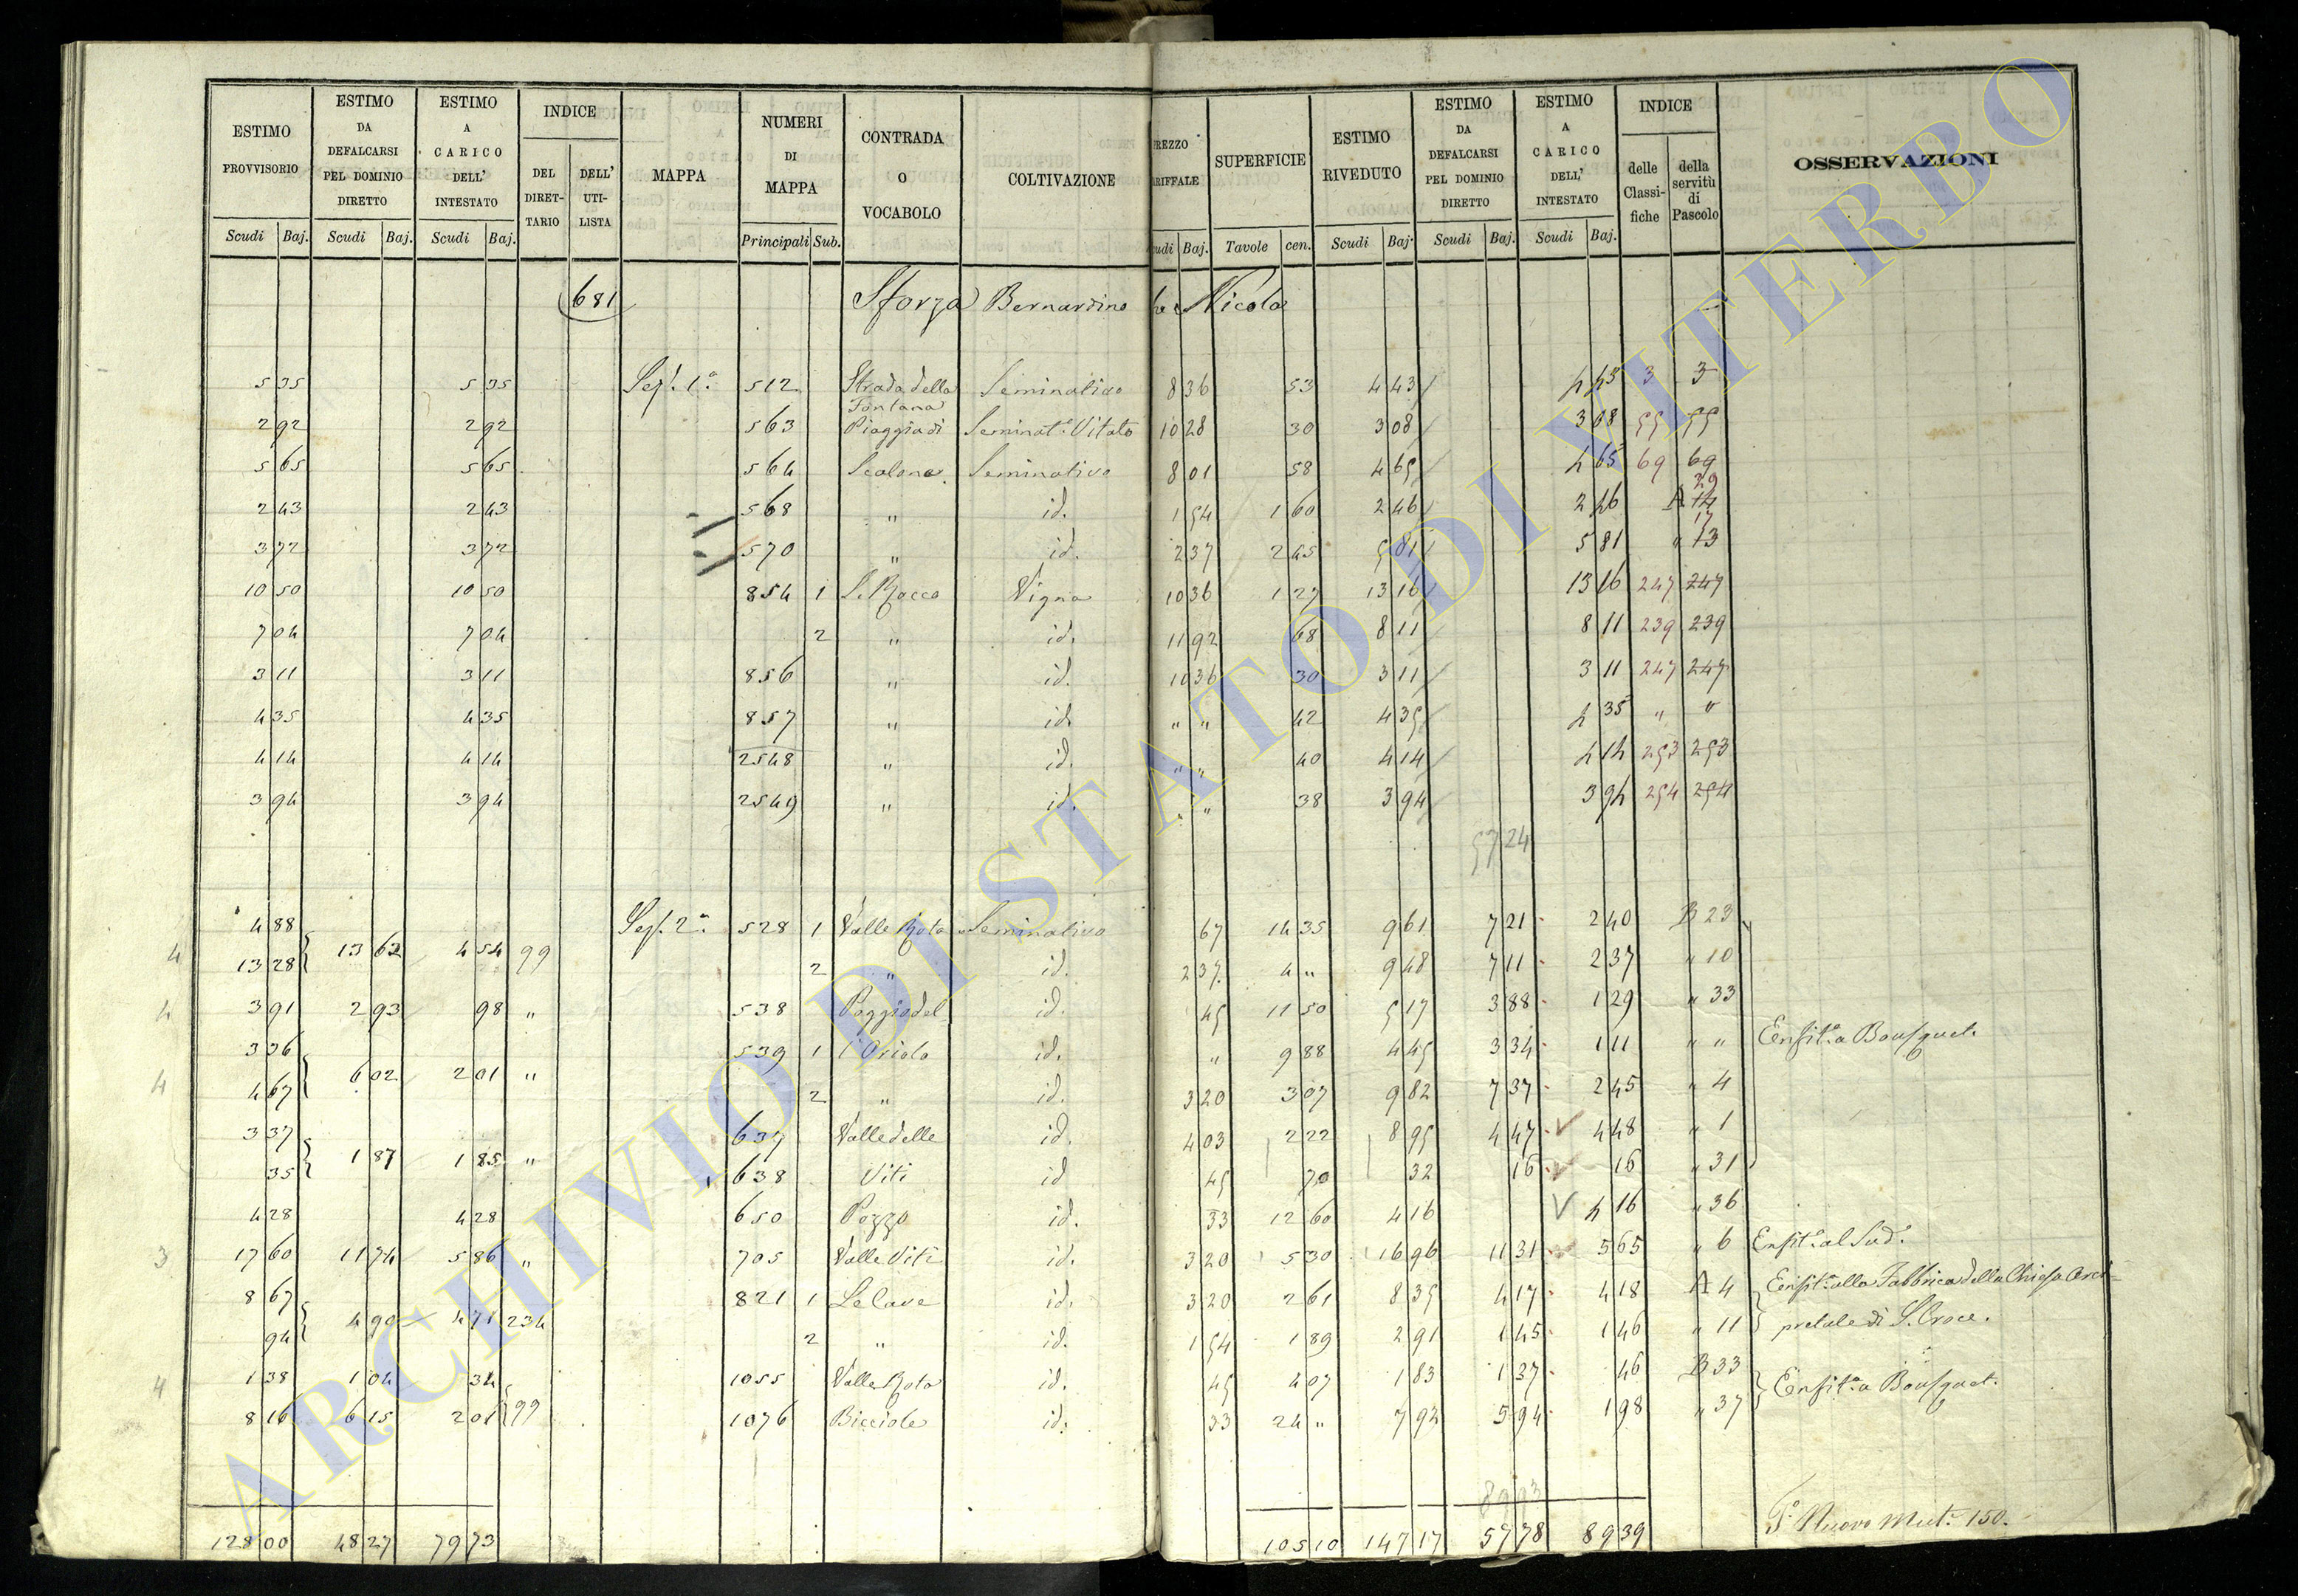 ESTIMO PROVVISORIO | ESTIMO DA DEFALCARSI PEL DOMINIO DIRETTO | ESTIMO A CARICO DELL' INTESTATO | INDICE | MAPPA | NUMERI DI MAPPA | CONTRADA O VOCABOLO | COLTIVAZIONE | REZZO ARIFFALE | SUPERFICIE | ESTIMO RIVEDUTO | ESTIMO DA DEFALCARSI PEL DOMINIO DIRETTO | ESTIMO A CARICO DELL' INTESTATO | INDICE | OSSERVAZIONI
DEL DIRET-TARIO | DELL' UTI-LISTA | delle Classi-fiche | della servitù di Pascolo
Scudi | Baj. | Scudi | Baj. | Scudi | Baj. | Principali | Sub. | cudi | Baj. | Tavole | cen. | Scudi | Baj. | Scudi | Baj. | Scudi | Baj.
681 Sforza Bernardino Nicola
5 35 | 5 35 | Sez. 1ª | 512 | Strada della Fontana | Seminativo | 8 36 | 53 | 4 43 | 4 43 | 3 | 3
2 92 | 2 92 | 563 | Piaggia di | Seminat. Vitato | 10 28 | 30 | 3 08 | 3 08 | 55 | 55
5 65 | 5 65 | 564 | Scalona | Seminativo | 8 01 | 58 | 4 65 | 4 65 | 69 | 69
2 43 | 2 43 | 568 | " | id. | 1 54 | 1 60 | 2 46 | 2 46 | A 14 29
3 72 | 3 72 | 570 | " | id. | 2 37 | 2 45 | 5 81 | 5 81 | " 13 17
10 50 | 10 50 | 854 | 1 | S. Rocco | Vigna | 10 36 | 1 27 | 13 16 | 13 16 | 247 | 247
7 04 | 7 04 | 2 | " | id. | 11 92 | 68 | 8 11 | 8 11 | 239 | 239
3 11 | 3 11 | 856 | " | id. | 10 36 | 30 | 3 11 | 3 11 | 247 | 247
4 35 | 4 35 | 857 | " | id. | " " | 42 | 4 35 | 4 35 | " | "
4 14 | 4 14 | 2548 | " | id. | " " | 40 | 4 14 | 4 14 | 253 | 253
3 94 | 3 94 | 2549 | " | id. | " " | 38 | 3 94 | 3 94 | 254 | 254
57 24
4 88 | Sez. 2ª | 528 | 1 | Valle Rota | Seminativo | 67 | 14 35 | 9 61 | 7 21 | 2 40 | B 23
4 | 13 28 | 13 62 | 4 54 | 99 | 2 | " | id. | 2 37 | 4 " | 9 48 | 7 11 | 2 37 | " 10
4 | 3 91 | 2 93 | 98 | " | 538 | Poggio del | id. | 45 | 11 50 | 5 17 | 3 88 | 1 29 | " 33
3 36 | 539 | 1 | l'Oriolo | id. | " | 9 88 | 4 45 | 3 34 | 1 11 | " " | Enfit. a Bousquet
4 | 4 67 | 6 02 | 2 01 | " | 2 | " | id. | 3 20 | 3 07 | 9 82 | 7 37 | 2 45 | " 4
3 37 | 637 | Valle delle | id. | 4 03 | 2 22 | 8 95 | 4 47 | 4 48 | " 1
35 | 1 87 | 1 85 | " | 638 | Viti | id | 45 | 70 | 32 | 16 | 16 | " 31
4 28 | 4 28 | 650 | Pozzo | id. | 33 | 12 60 | 4 16 | 4 16 | " 36
3 | 17 60 | 11 74 | 5 86 | " | 705 | Valle Viti | id. | 3 20 | 5 30 | 16 96 | 11 31 | 5 65 | " 6 | Enfit. al Sud.
8 67 | 821 | 1 | Le Cave | id. | 3 20 | 2 61 | 8 35 | 4 17 | 4 18 | A 4 | Enfit. alla Fabbrica della Chiesa Arci-
94 | 4 90 | 4 71 | 234 | 2 | " | id. | 1 54 | 1 89 | 2 91 | 1 45 | 1 46 | " 11 | pretale di S. Croce.
4 | 1 38 | 1 04 | 34 | 1055 | Valle Rota | id. | 45 | 4 07 | 1 83 | 1 37 | 46 | B 33
8 16 | 6 15 | 2 01 | 99 | 1076 | Bicciole | id. | 33 | 24 " | 7 92 | 5 94 | 1 98 | " 37 | Enfit. a Bousquet.
89 93
128 00 | 48 27 | 79 73 | 105 10 | 147 17 | 57 78 | 89 39 | Nuovo Mut. 150.
ARCHIVIO DI STATO DI VITERBO